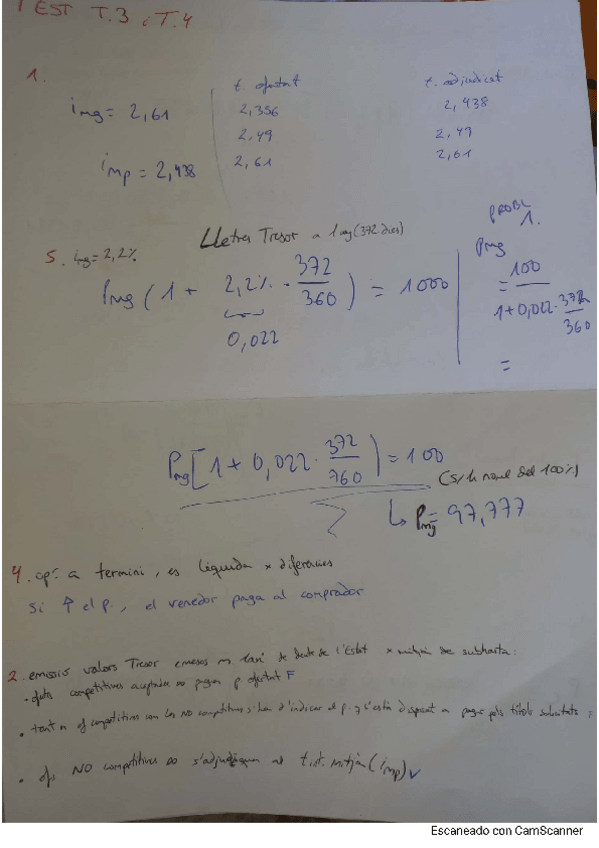 TEST T.3 i T.4
1.
t. ofertat t. adjudicat
img = 2,61 2,356 2,438
2,49 2,49
imp = 2,438 2,61 2,61
5. img = 2,2% Lletres Tresor a 1 any (372 dies)
Pmg (1 + 2,2% · 372/360) = 1000
0,022
PROBL 1.
Pmg
= 100 / 1+0,022·372/360
=
Pmg [1 + 0,022 · 372/360) = 100
(s/h nomel del 100%)
↳ Pmg = 97,777
4. op. a termini, es liquida x diferències
Si ↑ el p., el venedor paga al comprador
2. emissió valors Tresor emesos en de deute de l'Estat x mitjà de subhasta:
· ofertes competitives acceptades paguen p ofertat F
· tant en of competitives com les no competitives s'ha d'indicar el p. q s'està disposat a pagar pels títols sol·licitats
· ofs NO competitives s'adjudiquen al t.int. mitjà (imp) ✓
Escaneado con CamScanner